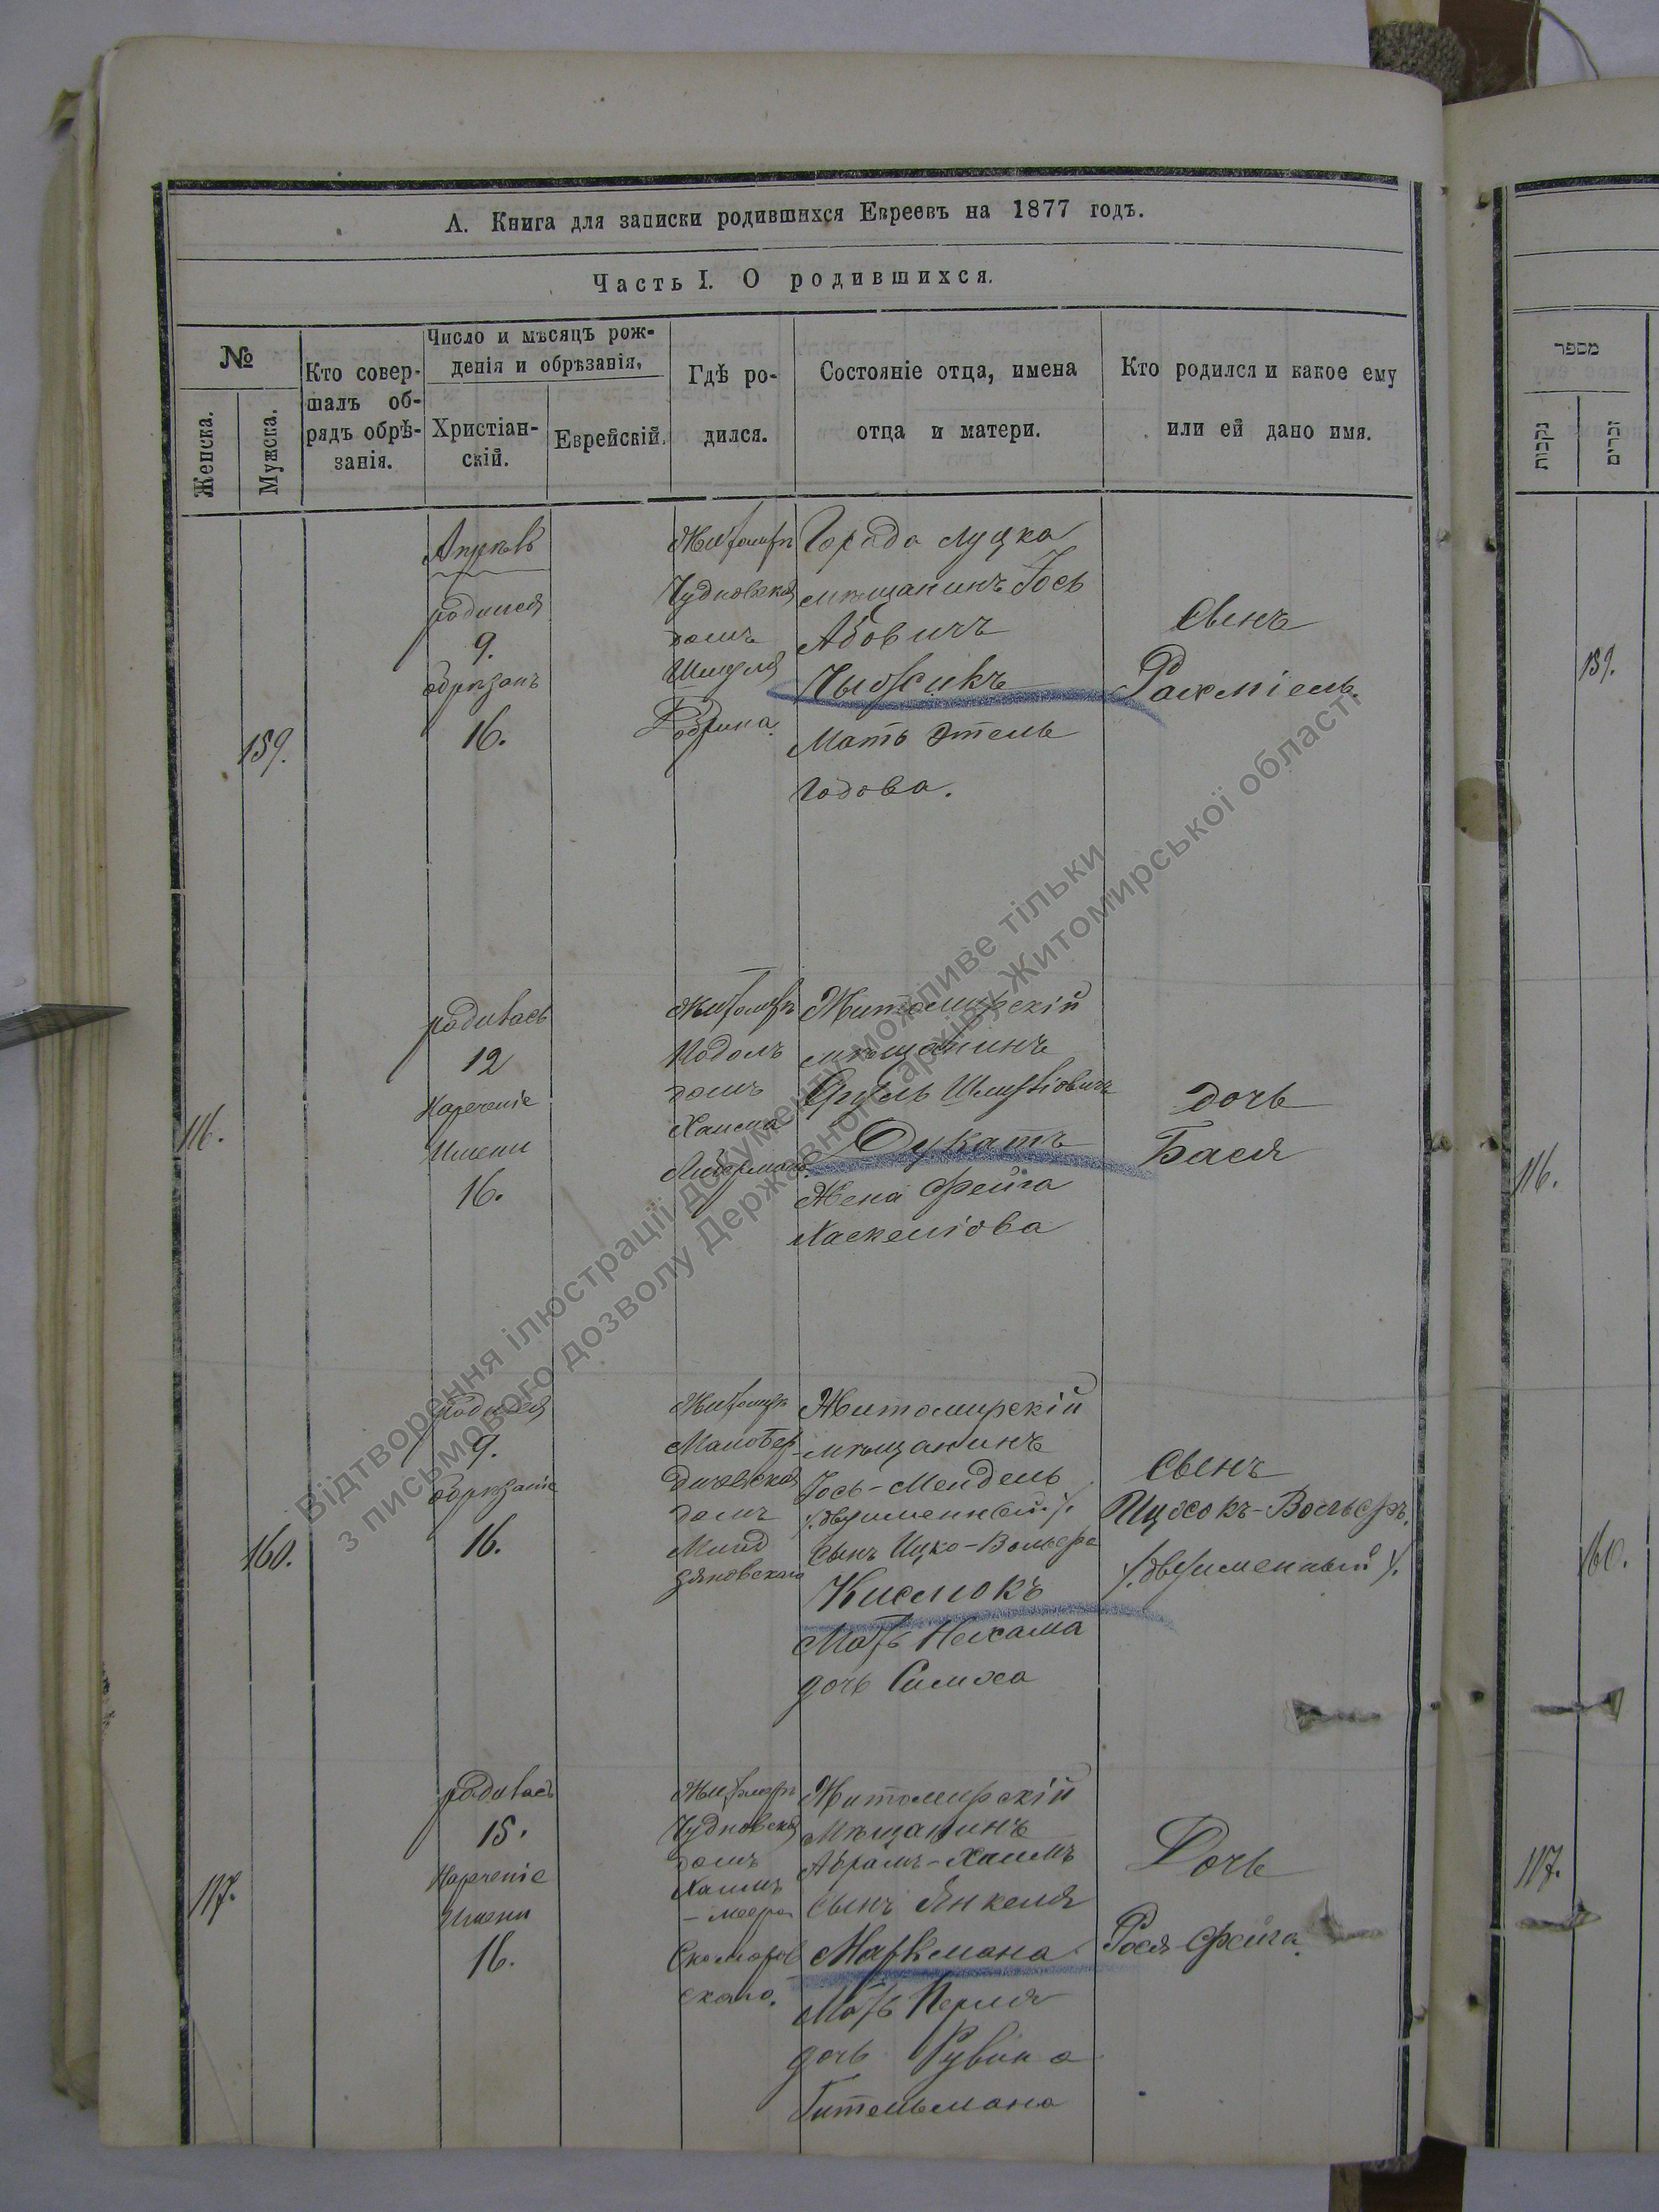 А. Книга для записки родившихся Евреевъ на 1877 годъ.
Часть I. О родившихся.
№
Женска.
Мужска.
Кто совер-
шалъ об-
рядъ обрѣ-
занія.
Число и мѣсяцъ рож-
денія и обрѣзанія.
Христіан-
скій.
Еврейскій.
Гдѣ ро-
дился.
Состояніе отца, имена
отца и матери.
Кто родился и какое ему
или ей дано имя.
159.
Апрѣль
родился
9.
обрѣзанъ
16.
Житомиръ
Чудновская
домъ
Шмуля
Города Луцка
мѣщанинъ Іось
Абовичъ
Мать Этель
Годова.
Сынъ
Рахміель.
116.
родилась
12
Нареченіе
Имени
16.
Житомиръ
Подолъ
домъ
Хаима
Житомирскій
мѣщанинъ
Дукатъ
Жена Фейга
Хаскеліова
дочь
Бася
160.
родился
9.
обрѣзаніе
16.
Житомиръ
Малобер-
дичевская
домъ
Житомирскій
мѣщанинъ
Іось-Мендель
/.двуименный./.
сынъ Ицко-Вольфа
Кислюкъ
Мать Нехама
дочь Симха
Сынъ
Ицхокъ-Вольфъ.
/.двуименный/.
117.
родилась
15.
Нареченіе
Имени
16.
Житомиръ
Чудновская
домъ
Хаимъ
-Меера
Скоморов
скаго.
Житомирскій
Мѣщанинъ
Абрамъ-Хаимъ
сынъ Янкеля
Маркмана
Мать Перля
дочь Рувина
Гительмана
Дочь
Рося Фейга.
מספר
נקבות
זכרים
159.
116.
160.
117.
Відтворення ілюстрації документу можливе тільки
з письмового дозволу Державного архіву Житомирської області